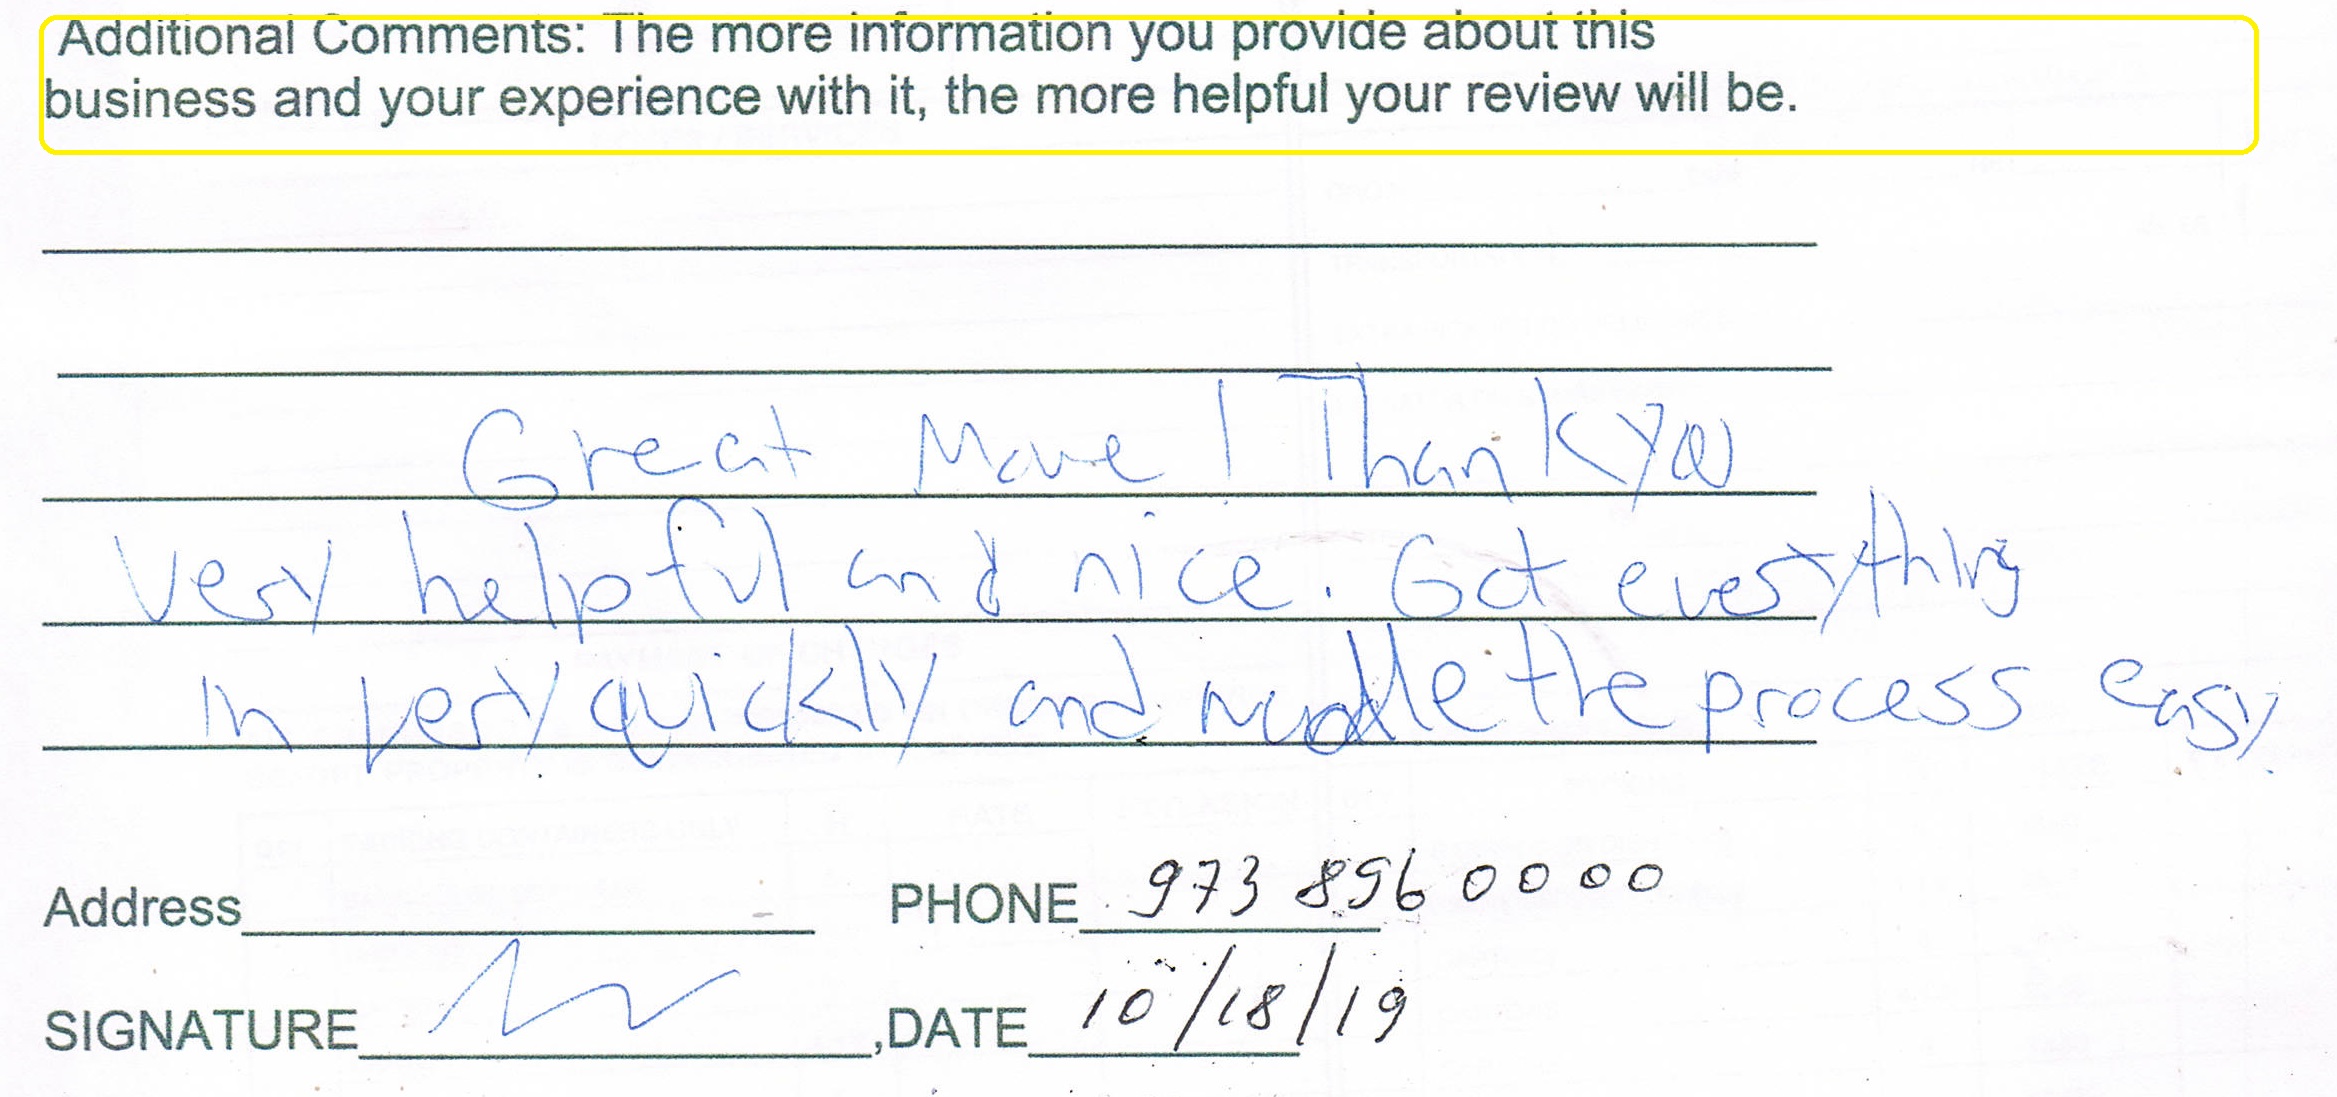 Additional Comments: The more information you provide about this
business and your experience with it, the more helpful your review will be.
Great Move! Thank you
very helpful and nice. Got everything
in very quickly and made the process easy.
Address PHONE 973 896 0000
SIGNATURE ,DATE 10/18/19